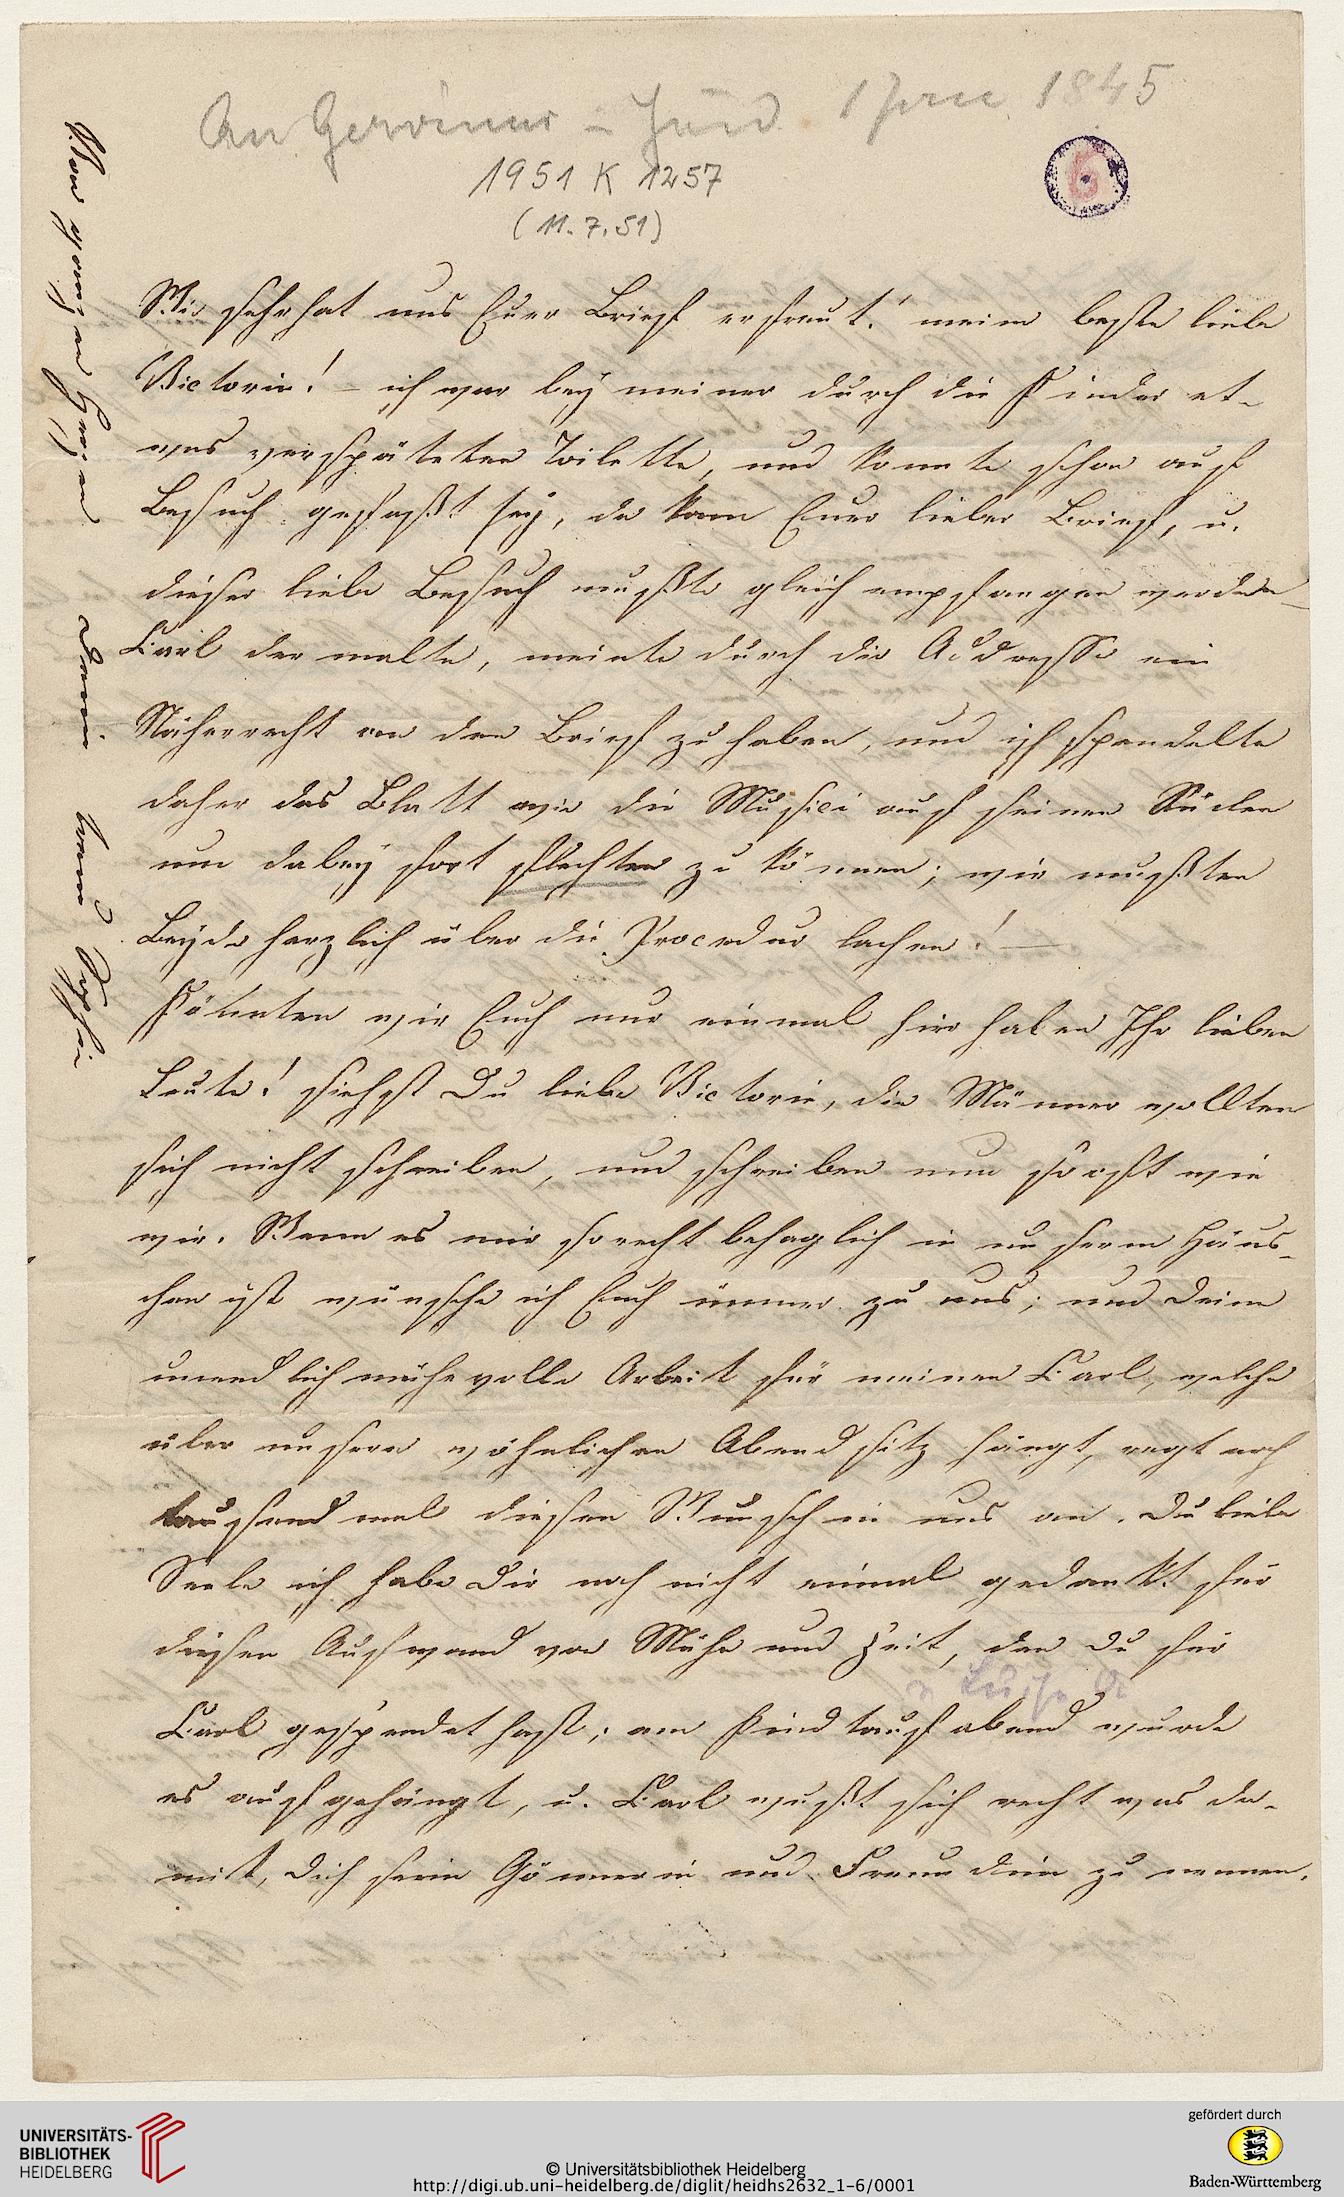 An Gervinus 1845
1951 K 1257
(11.7.51)
6
Wie sehr hat uns Euer Brief erfreut! meine beste liebe
Victorie! – ich war bey meiner durch die Kinder et-
was verspäteten Toilette, und konnte schon auf
Besuch gefaßt sey, da kam Euer lieber Brief, u.
dieser liebe Besuch mußte gleich empfangen werden –
Carl der malte, meinte durch die Addresse ein
Näherrecht an den Brief zu haben, und ich spendelte
daher das Blatt wie die Musici auf seinen Rücken
um dabey fort zu können; wir mußten
Beyde herzlich über die Procedur lachen! —
Könnten wir Euch nur einmal hier haben Ihr lieben
Leute! siehst Du liebe Victorie, die Männer wollten
sich nicht schreiben, und schreiben nun so oft wie
wir. Wenn es mir so recht behaglich in unserm Häus-
chen ist wünsche ich Euch immer zu uns; und Deine
unendlich mühevolle Arbeit für meinen Carl, welche
über unsern wöhnlichen Abendsitz hängt, regt noch
tausend mal diesen Wunsch in uns an. Du liebe
Seele ich habe Dir noch nicht einmal gedankt für
diesen Aufwand von Mühe und Zeit, den Du für
Carl gespendet hast; am Kindtaufabend wurde
es aufgehängt, u. Carl wußt sich recht was da-
mit, Dich seine Gönnerin und Freundin zu nennen.
Von ganzem Herzen Deine
UNIVERSITÄTS-
BIBLIOTHEK
HEIDELBERG
© Universitätsbibliothek Heidelberg
http://digi.ub.uni-heidelberg.de/diglit/heidhs2632_1-6/0001
gefördert durch
Baden-Württemberg